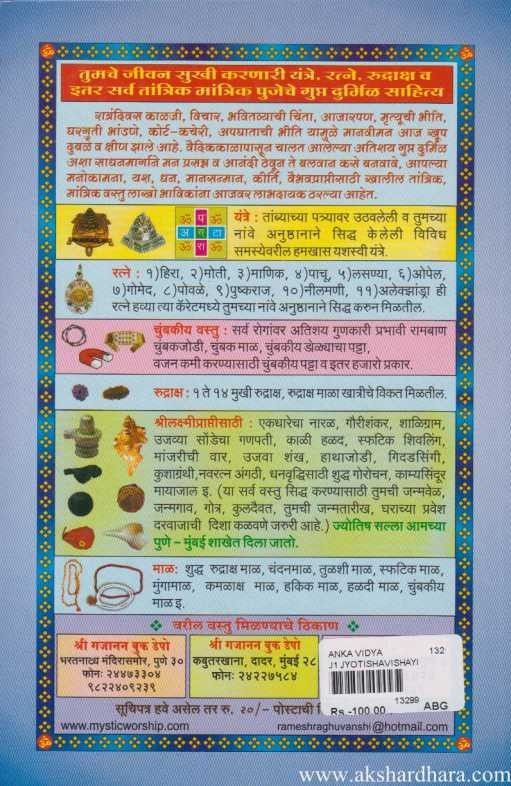 तुमचे जीवन सुखी करणारी यंत्रे, रत्ने, रुद्राक्ष व
इतर सर्व तांत्रिक मांत्रिक पुजेचे गुप्त दुर्मिळ साहित्य
रात्रंदिवस काळजी, विचार, भवितव्याची चिंता, आजारपण, मृत्यूची भीती,
घरगुती भांडणे, कोर्ट-कचेरी, अपघाताची भीती यामुळे मानवीमन आज खुप
दुबळे व क्षीण झाले आहे. वैदिककाळापासून चालत आलेल्या अतिशय गुप्त दुर्मिळ
अशा साधनमार्गाने मन प्रसन्न व आनंदी ठेवून ते बलवान कसे बनवावे, आपल्या
मनोकामना, यश, धन, मानसन्मान, कीर्ति, वैभवप्राप्तीसाठी खालील तांत्रिक,
मांत्रिक वस्तु लाखो भाविकांना आजवर लाभदायक ठरल्या आहेत.
यंत्रे : तांब्याच्या पत्र्यावर उठवलेली व तुमच्या
नांवे अनुष्ठानाने सिद्ध केलेली विविध
समस्येवरील हमखास यशस्वी यंत्रे.
रत्ने : १)हिरा, २)मोती, ३)माणिक, ४)पाचू, ५)लसण्या, ६)ओपेल,
७)गोमेद, ८)पोवळे, ९)पुष्कराज, १०)नीलमणी, ११)अलेक्झांड्रा ही
रत्ने हव्या त्या कॅरेटमध्ये तुमच्या नांवे अनुष्ठानाने सिद्ध करुन मिळतील.
चुंबकीय वस्तु : सर्व रोगांवर अतिशय गुणकारी प्रभावी रामबाण
चुंबकजोडी, चुंबक माळ, चुंबकीय डोळ्याचा पट्टा,
वजन कमी करण्यासाठी चुंबकीय पट्टा व इतर हजारो प्रकार.
रुद्राक्ष : १ ते १४ मुखी रुद्राक्ष, रुद्राक्ष माळा खात्रीचे विकत मिळतील.
श्रीलक्ष्मीप्राप्तीसाठी : एकधारेचा नारळ, गौरीशंकर, शाळिग्राम,
उजव्या सोंडेचा गणपती, काळी हळद, स्फटिक शिवलिंग,
मांजरीची वार, उजवा शंख, हाथाजोडी, गिदडसिंगी,
कुशाग्रंथी,नवरत्न अंगठी, धनवृद्धिसाठी शुद्ध गोरोचन, काम्यसिंदूर
मायाजाल इ. (या सर्व वस्तु सिद्ध करण्यासाठी तुमची जन्मवेळ,
जन्मगाव, गोत्र, कुलदैवत, तुमची जन्मतारीख, घराच्या प्रवेश
दरवाजाची दिशा कळवणे जरुरी आहे.) ज्योतिष सल्ला आमच्या
पुणे - मुंबई शाखेत दिला जातो.
माळ: शुद्ध रुद्राक्ष माळ, चंदनमाळ, तुळशी माळ, स्फटिक माळ,
मुंगामाळ, कमळाक्ष माळ, हकिक माळ, हळदी माळ, चुंबकीय
माळ इ.
वरील वस्तु मिळण्याचे ठिकाण
श्री गजानन बुक डेपो
भरतनाट्य मंदिरासमोर, पुणे ३०
फोन: २४४७३३०४
९८२२४०९२३९
श्री गजानन बुक डेपो
कबुतरखाना, दादर, मुंबई २८
फोन: २४२२७५८४
ANKA VIDYA 132
J1 JYOTISHAVISHAYI
13299
Rs.-100.00 ABG
सूचिपत्र हवे असेल तर रु. २०/- पोस्टाची
www.mysticworship.com rameshraghuvanshi@hotmail.com
www.akshardhara.com